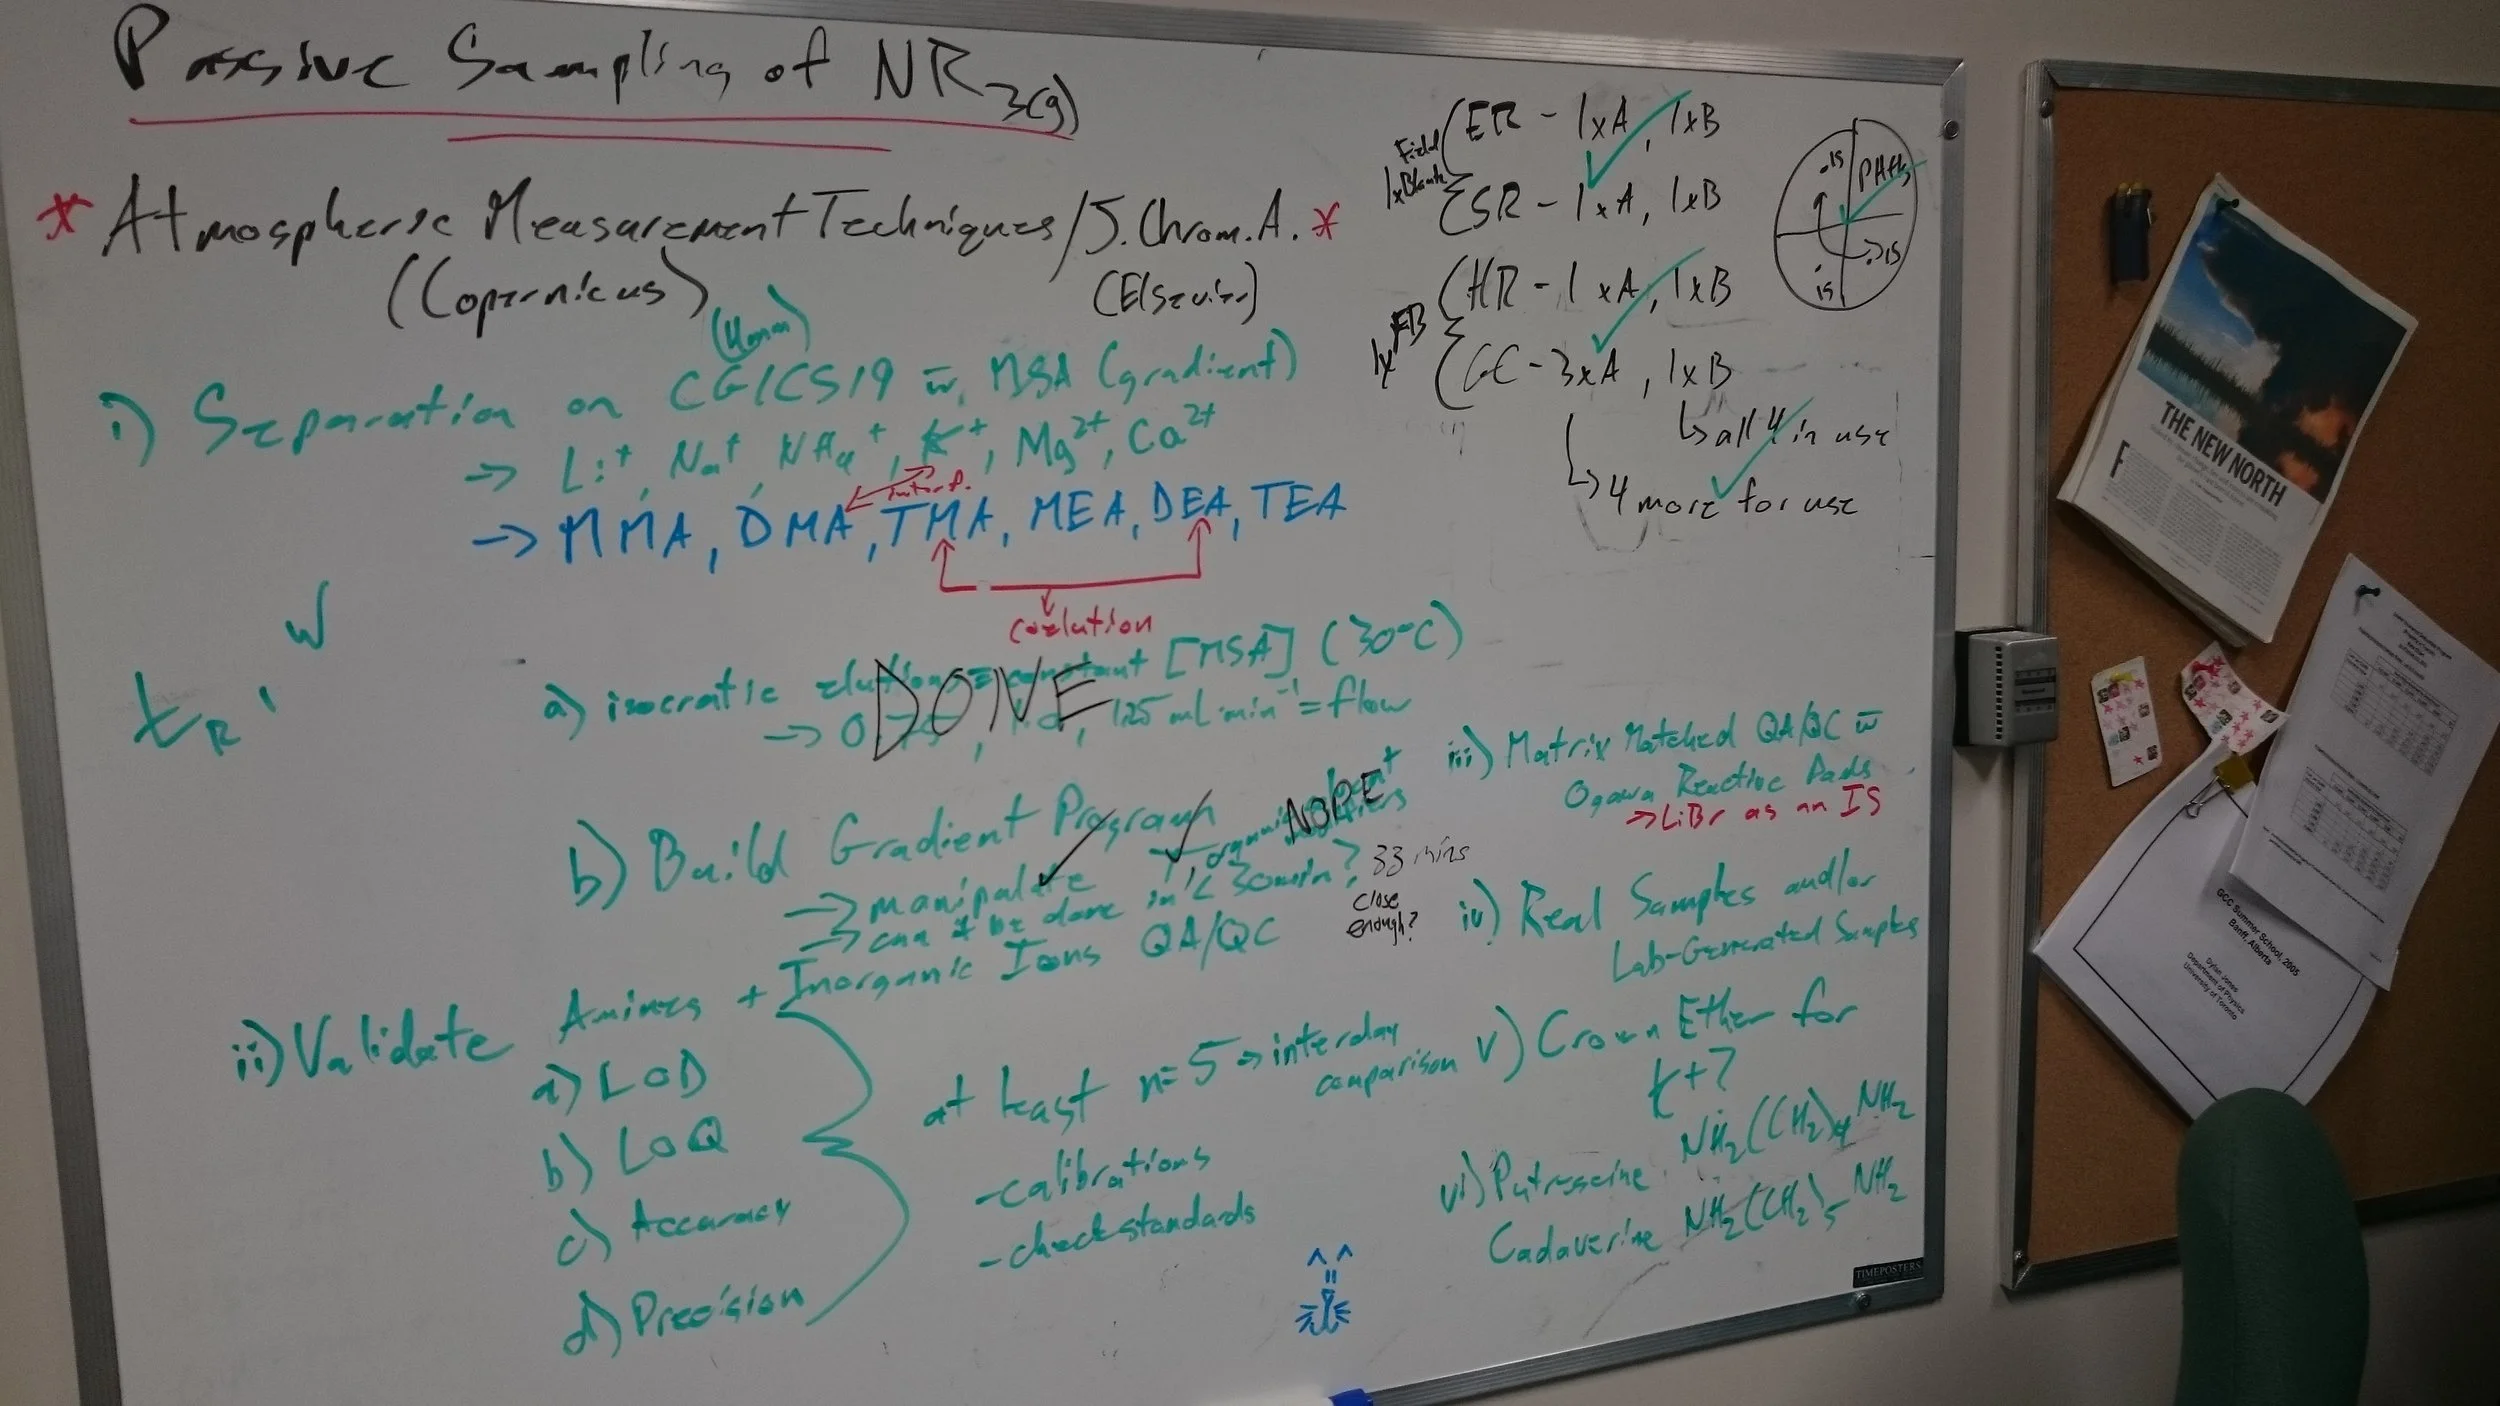 Passive Sampling of NR3(g)
* Atmospheric Measurement Techniques / J. Chrom. A. *
(Copernicus)
(Elsevier)
i) Separation on CG/CS19 w̄, MSA (gradient)
(4mm)
→ Li⁺, Na⁺, NH₄⁺, K⁺, Mg²⁺, Ca²⁺
interf.
→ MMA, DMA, TMA, MEA, DEA, TEA
coelution
tR, w
a) isocratic elution = constant [MSA] (30°C)
DONE
→ 0.75, 1.0, 1.25 mL·min⁻¹ = flow
b) Build Gradient Program
→ manipulate T, organic
NOPE
→ can it be done in < 30 min? 33 mins
close
enough?
ii) Validate Amines + Inorganic Ions QA/QC
a) LOD
b) LOQ
c) Accuracy
d) Precision
at least n=5 → interday
comparison
- calibrations
- check standards
iii) Matrix Matched QA/QC w̄
Ogawa Reactive Pads
→ LiBr as an IS
iv) Real Samples and/or
Lab-Generated Samples
v) Crown Ether for
K+?
vi) Putrescine NH₂(CH₂)₄NH₂
Cadaverine NH₂(CH₂)₅NH₂
Field
1xBlank
ER - 1xA, 1xB
SR - 1xA, 1xB
1xFB
HR - 1xA, 1xB
GC - 3xA, 1xB
↳ all 4 in use
↳ 4 more for use
PAHs
is
is
is
TIMEPOSTERS
THE NEW NORTH
GCC Summer School, 2005
Banff, Alberta
Dylan Jones
Department of Physics
University of Toronto